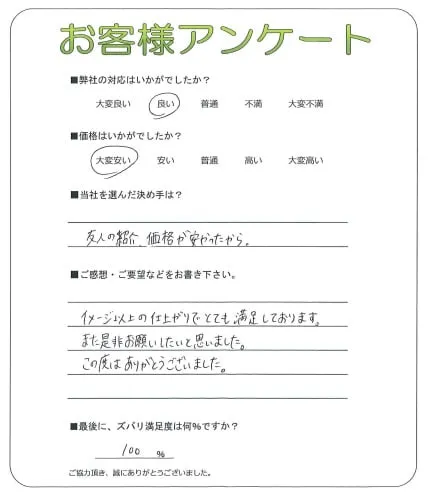 お客様アンケート
■弊社の対応はいかがでしたか？
大変良い 良い 普通 不満 大変不満
■価格はいかがでしたか？
大変安い 安い 普通 高い 大変高い
■当社を選んだ決め手は？
友人の紹介、価格が安かったから。
■ご感想・ご要望などをお書き下さい。
イメージ以上の仕上がりでとても満足しております。
また是非お願いしたいと思いました。
この度はありがとうございました。
■最後に、ズバリ満足度は何%ですか？
100 %
ご協力頂き、誠にありがとうございました。